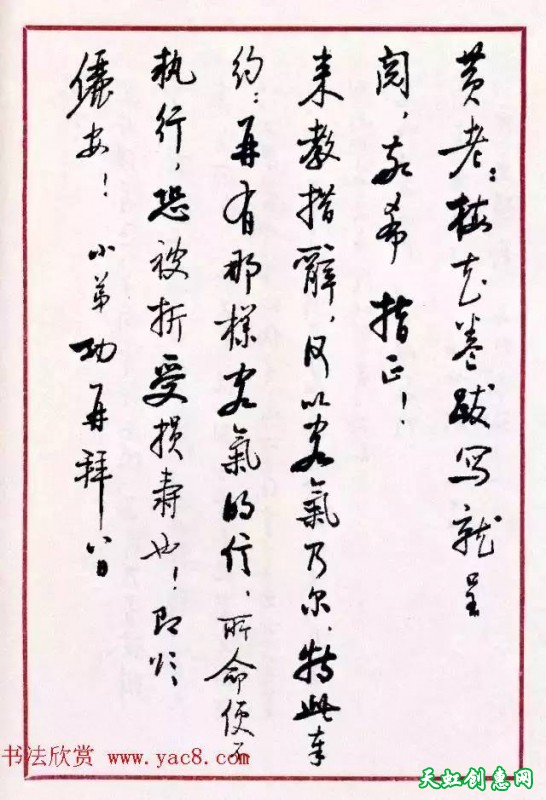 黄老：梅花卷跋写就呈
阅，敬希指正！
来教措辞，何以客氣乃尔，特此奉
约：再有那様客氣的信，所命便不
执行，恐被折受损寿也！即颂
儷安！
小弟功再拜 八日
书法欣赏 www.yac8.com
天虹创意网